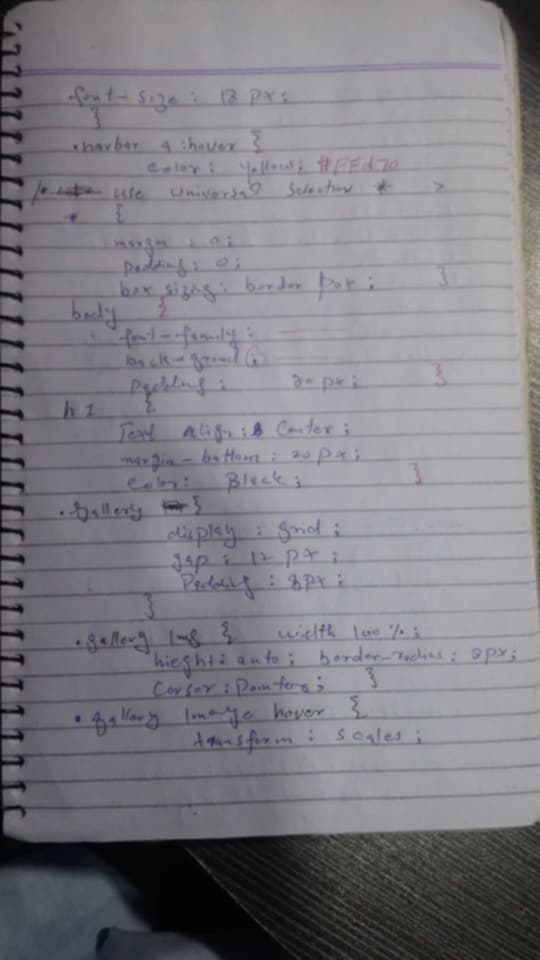 font-size: 13 px;
}
.navbar a:hover {
color: yellow; #FFd70
/* use universal selector * >
* {
margin : 0;
padding : 0;
box sizing : border box ; }
body {
font-family :
back-ground ;
Padding : 20 px ; }
h1 {
Text align : Center ;
margin-bottom : 20px ;
color: Black ; }
.gallery {
display : grid ;
gap : 12 px ;
Padding : 8px ;
}
.gallery img { width 100%;
hieght : auto ; border-radius : 8px;
Corsor : Pointers ; }
.gallery Image hover {
transform : scales ;